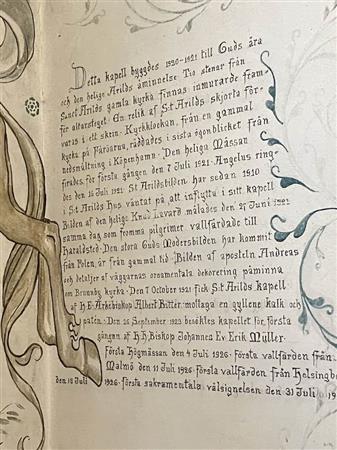 Detta kapell byggdes 1920-1921 till Guds ära
och den helige Arilds åminnelse. Tio stenar från
Sanct Arilds gamla kyrka finnas inmurade fram-
för altarsteget. En relik af S:t Arilds skjorta för-
varas i ett skrin. Kyrkklockan, från en gammal
kyrka på Färöarna, räddades i sista ögonblicket från
nedsmältning i Köpenhamn. Den heliga Mässan
firades för första gången den 7 Juli 1921. Angelus ring-
des den 16 Juli 1921. S:t Arildsbilden har sedan 1910
i S:t Arilds Hus väntat på att inflytta i sitt kapell
Bilden af den helige Knud Lavard målades den 27 Juni 1921
samma dag, som femma pilgrimer vallfärdade till
Haraldsted. Den stora Guds Modersbilden har kommit
från Polen, är från gammal tid. Bilden af aposteln Andreas
och detaljer af väggarnas ornamentala dekorering påminna
om Brunnby kyrka. Den 7 October 1921 fick S:t Arilds kapell
af H.E. Arkebiskop Albert Bitter mottaga en gyllene kalk och
paten. Den 26 September 1923 besöktes kapellet för första
gången af H.H. Biskop Johannes Ev. Erik Müller.
Första Högmässan den 4 Juli 1926. Första vallfärden från
Malmö den 11 Juli 1926. Första vallfärden från Helsingb
den 18 Juli 1926. Första sakramentala välsignelsen den 31 Juli 19